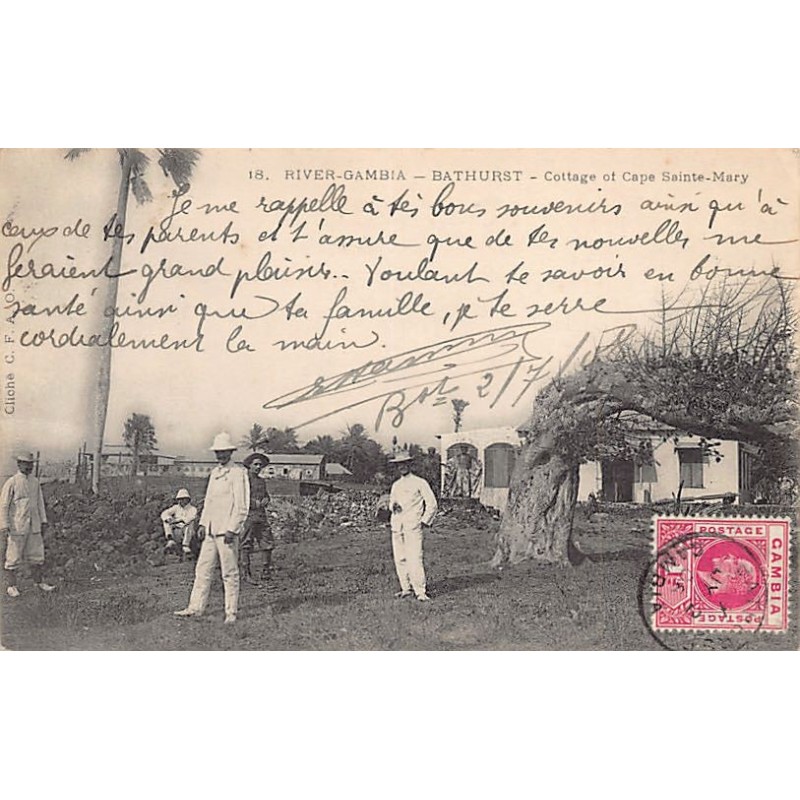 18. RIVER-GAMBIA — BATHURST - Cottage of Cape Sainte-Mary
Je me rappelle à tes bons souvenirs ainsi qu'à
ceux de tes parents et t'assure que de tes nouvelles me
feraient grand plaisir.. Voulant te savoir en bonne
santé ainsi que ta famille, je te serre
cordialement la main.
Bst 2/7/
Cliché C. F. A. O.
POSTAGE
GAMBIA
POSTAGE